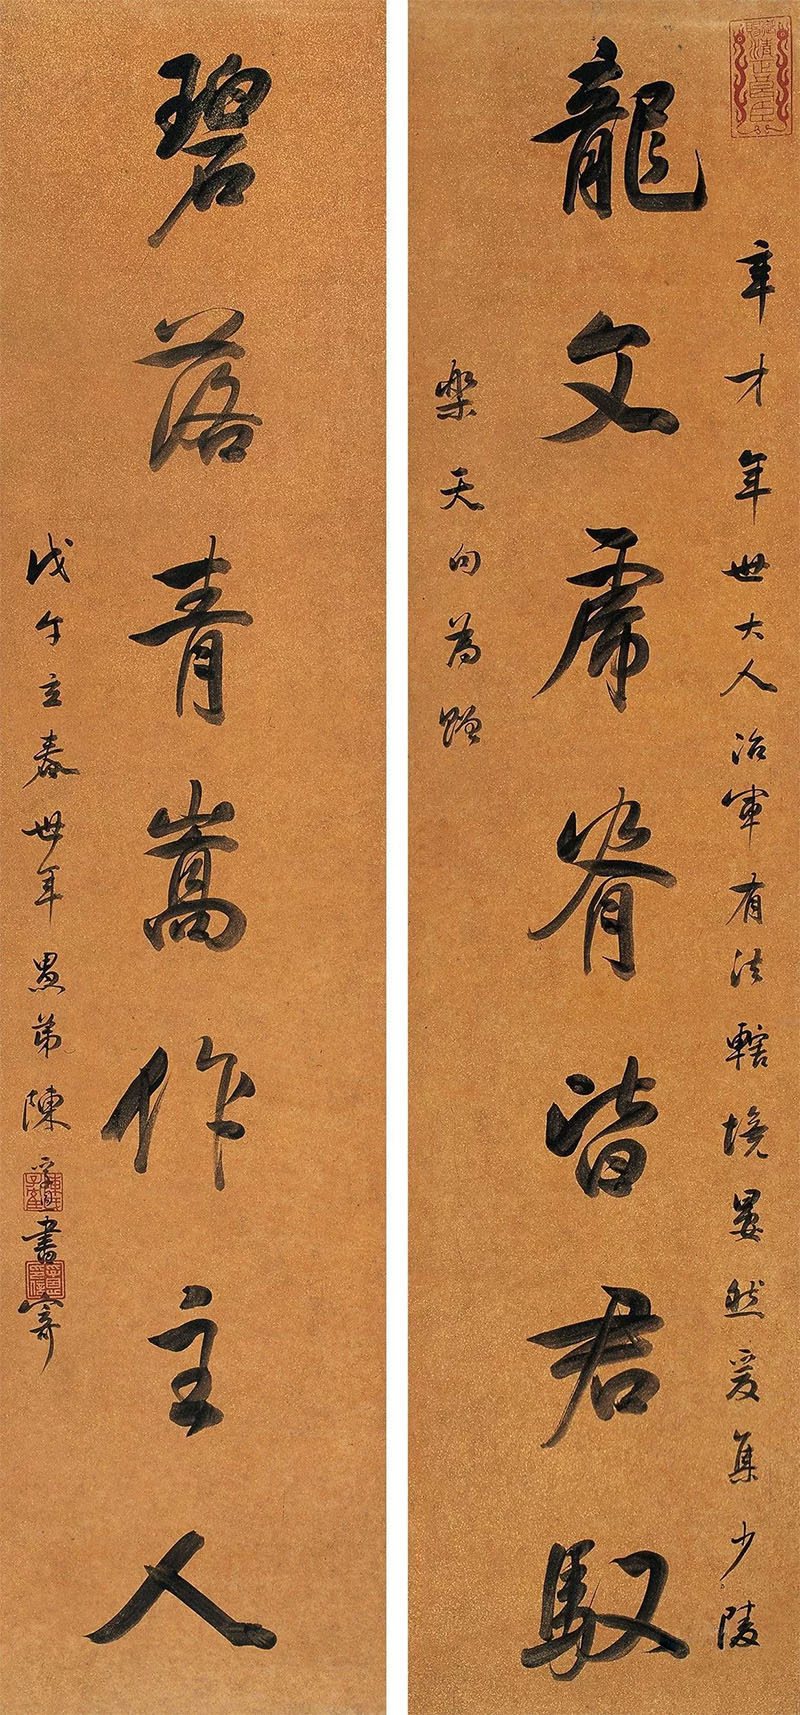 才年世大人治軍有法轄境晏然爰集少陵
龍文虎脊皆君馭
樂天句為贈
碧落青嵩作主人
戊午立春世年愚弟陳書寄